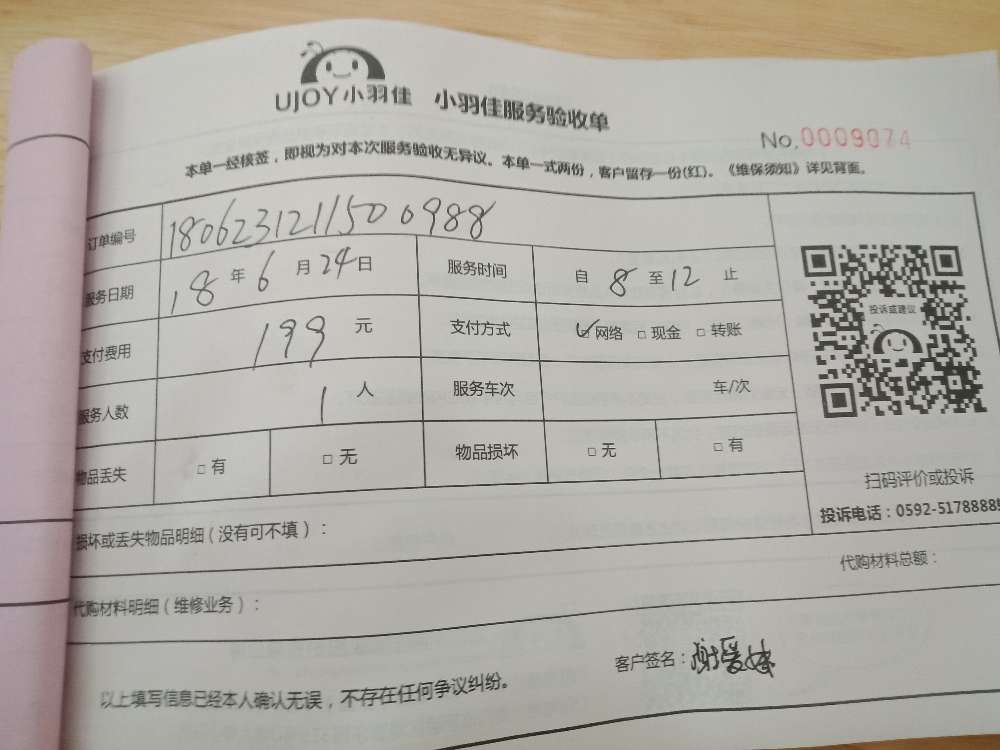 UJOY小羽佳 小羽佳服务验收单
No.0009074
本单一经核签，即视为对本次服务验收无异议。本单一式两份，客户留存一份(红)。《维保须知》详见背面。
订单编号 180623121150 0988
服务日期 18年6月24日 服务时间 自8至12止
支付费用 199元 支付方式 ☑网络 □现金 □转账
服务人数 1人 服务车次 车/次
物品丢失 □有 □无 物品损坏 □无 □有
投诉或建议
扫码评价或投诉
投诉电话：0592-5178888
损坏或丢失物品明细（没有可不填）：
代购材料明细（维修业务）： 代购材料总额：
客户签名：谢爱妹
以上填写信息已经本人确认无误，不存在任何争议纠纷。